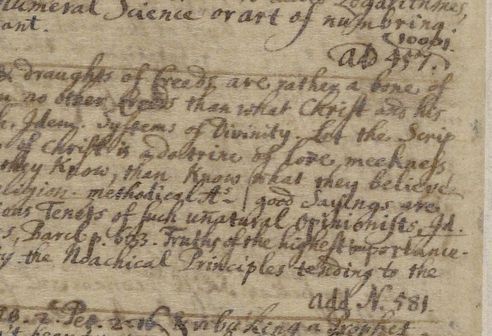 Logarithmes,
numeral Science or art of numbring.
ant.
10001.
add 457.
draughts of Creeds are rather a bone of
no other Creeds than what Christ and his
Idem. Systems of Divinity. Let the Scrip
of Christ is a doctrine of love, meekness,
they Know, than Know what they believe.
religion. methodical good Sayings are
ious Tenets of such unatural Opinionists. Id.
Barcl. p. 653. Truths of the highest importance.
the Noachical Principles tending to the
add N. 581.
2. Pet. 2-16 a Prophet